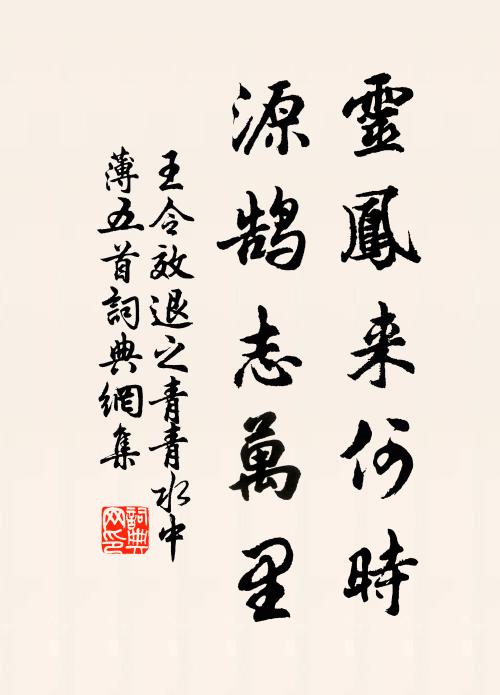 靈鳳来何時
源鵠志萬里
王令效退之青青水中
薄五首詞典網集
詞典
网印